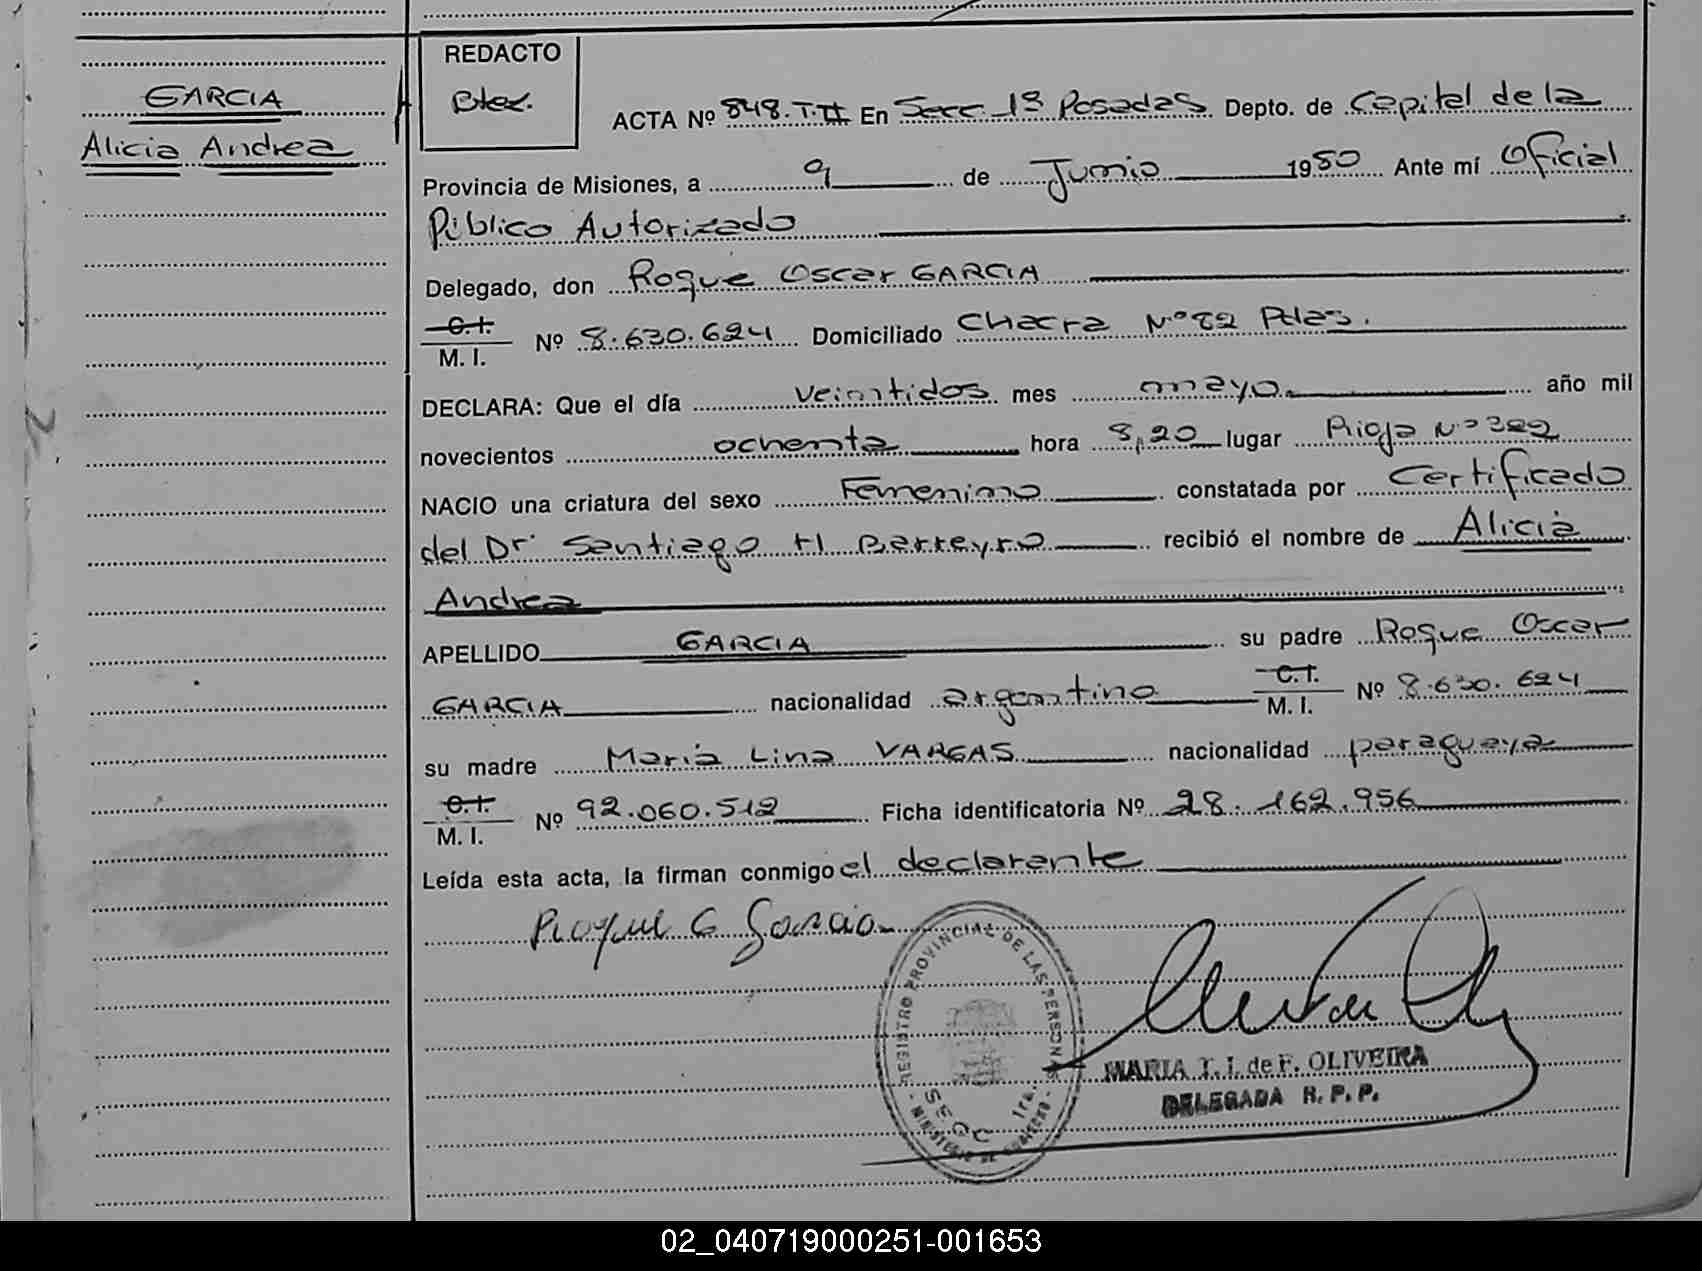 GARCIA
Alicia Andrea
REDACTO
Btez.
ACTA Nº 848.T.II En Secc. 1ª Posadas Depto. de Capital de la
Provincia de Misiones, a 9 de Junio 1980 Ante mí Oficial
Público Autorizado
Delegado, don Roque Oscar GARCIA
C.I.
M. I. Nº 8.630.624 Domiciliado Chacra Nº 82 Pdas.
DECLARA: Que el día veintidos mes mayo año mil
novecientos ochenta hora 8,20 lugar Rioja Nº 322
NACIO una criatura del sexo Femenino constatada por Certificado
del Dr Santiago H Barreyro recibió el nombre de Alicia
Andrea
APELLIDO GARCIA su padre Roque Oscar
GARCIA nacionalidad argentino C.I.
M. I. Nº 8.630.624
su madre Maria Lina VARGAS nacionalidad paraguaya
C.I.
M. I. Nº 92.060.512 Ficha identificatoria Nº 28.162.956
Leída esta acta, la firman conmigo el declarante
Roque O Garcia
REGISTRO PROVINCIAL DE LAS PERSONAS
SECC 1ra.
MINISTERIO DE GOBIERNO
MARIA T. I. de F. OLIVEIRA
DELEGADA R. P. P.
02_040719000251-001653